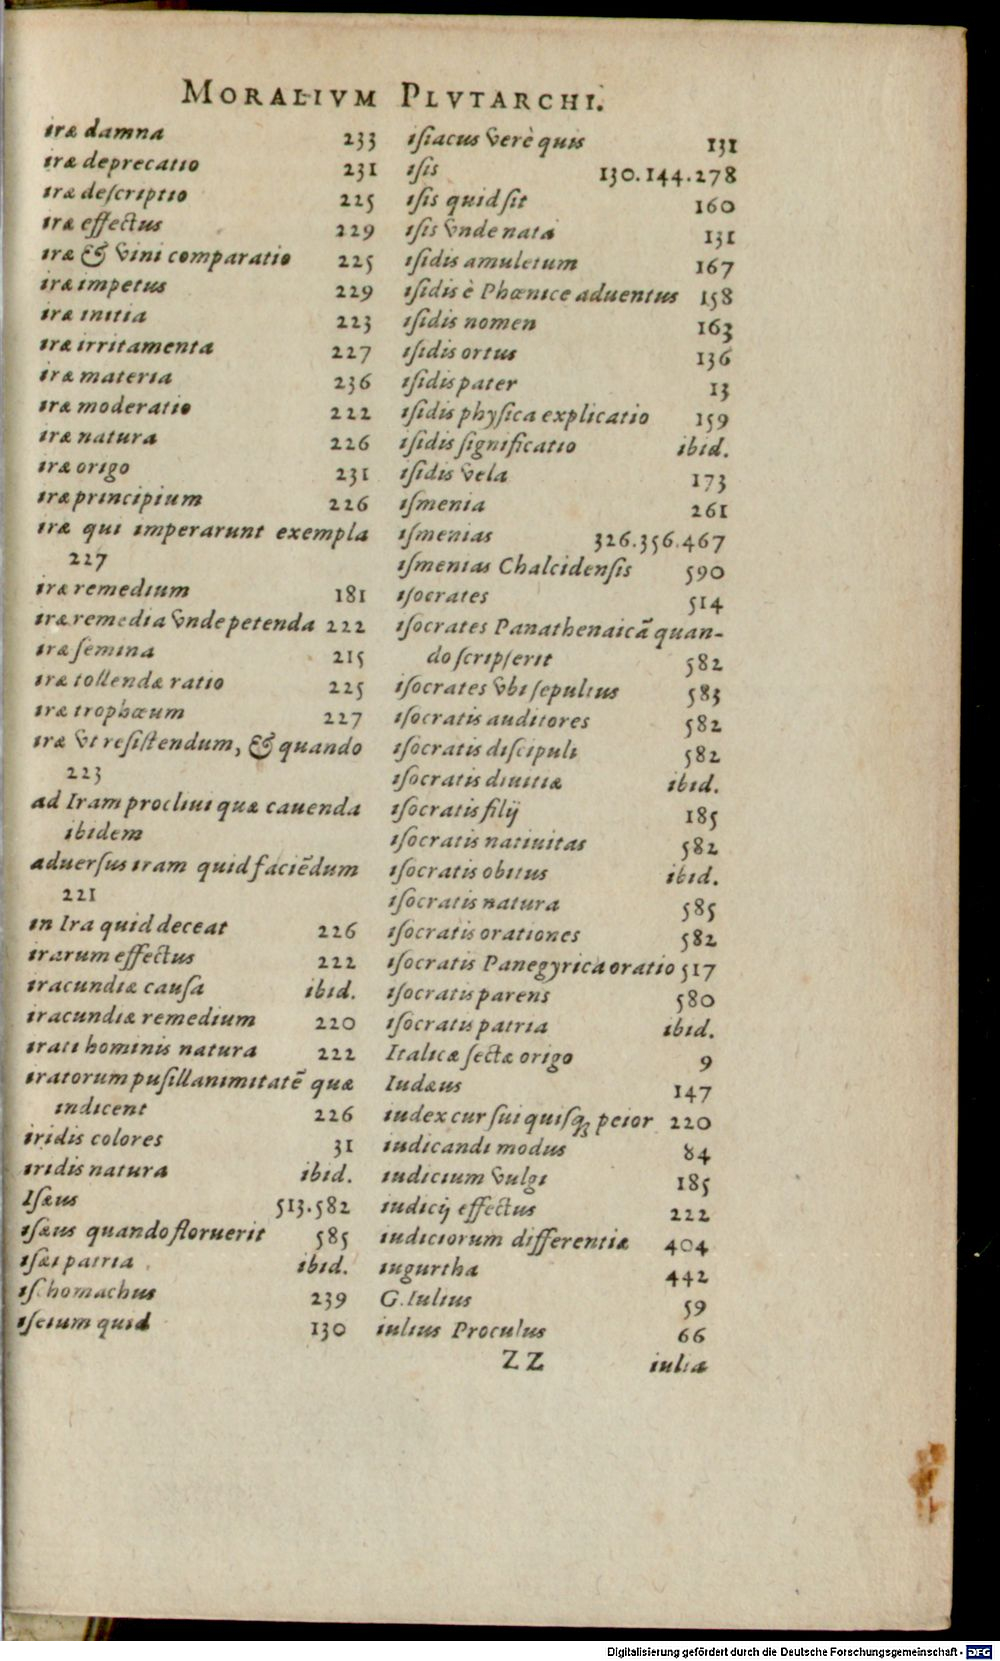 MORALIVM PLVTARCHI.
iræ damna 233
iræ deprecatio 231
iræ descriptio 225
iræ effectus 229
iræ & vini comparatio 225
iræ impetus 229
iræ initia 223
iræ irritamenta 227
iræ materia 236
iræ moderatio 222
iræ natura 226
iræ origo 231
iræ principium 226
iræ qui imperarunt exempla
227
iræ remedium 181
iræ remedia vnde petenda 222
iræ semina 215
iræ tollendæ ratio 225
iræ trophœum 227
iræ vt resistendum, & quando
223
ad Iram procliui quæ cauenda
ibidem
aduersus iram quid faciẽdum
221
in Ira quid deceat 226
irarum effectus 222
iracundiæ causa ibid.
iracundiæ remedium 220
irati hominis natura 222
iratorum pusillanimitatẽ quæ
indicent 226
iridis colores 31
iridis natura ibid.
Isæus 513.582
isæus quando floruerit 585
isæi patria ibid.
ischomachus 239
iseium quid 130
isiacus verè quis 131
isis 130.144.278
isis quid sit 160
isis vnde nata 131
isidis amuletum 167
isidis è Phœnice aduentus 158
isidis nomen 163
isidis ortus 136
isidis pater 13
isidis physica explicatio 159
isidis significatio ibid.
isidis vela 173
ismenia 261
ismenias 326.356.467
ismenias Chalcidensis 590
isocrates 514
isocrates Panathenaicã quan-
do scripserit 582
isocrates vbi sepultus 583
isocratis auditores 582
isocratis discipuli 582
isocratis diuitiæ ibid.
isocratis filij 185
isocratis natiuitas 582
isocratis obitus ibid.
isocratis natura 585
isocratis orationes 582
isocratis Panegyrica oratio 517
isocratis parens 580
isocratis patria ibid.
Italicæ sectæ origo 9
Iudæus 147
iudex cur sui quisq; peior 220
iudicandi modus 84
iudicium vulgi 185
iudicij effectus 222
iudiciorum differentiæ 404
iugurtha 442
G. Iulius 59
iulius Proculus 66
ZZ iulia
Digitalisierung gefördert durch die Deutsche Forschungsgemeinschaft - DFG